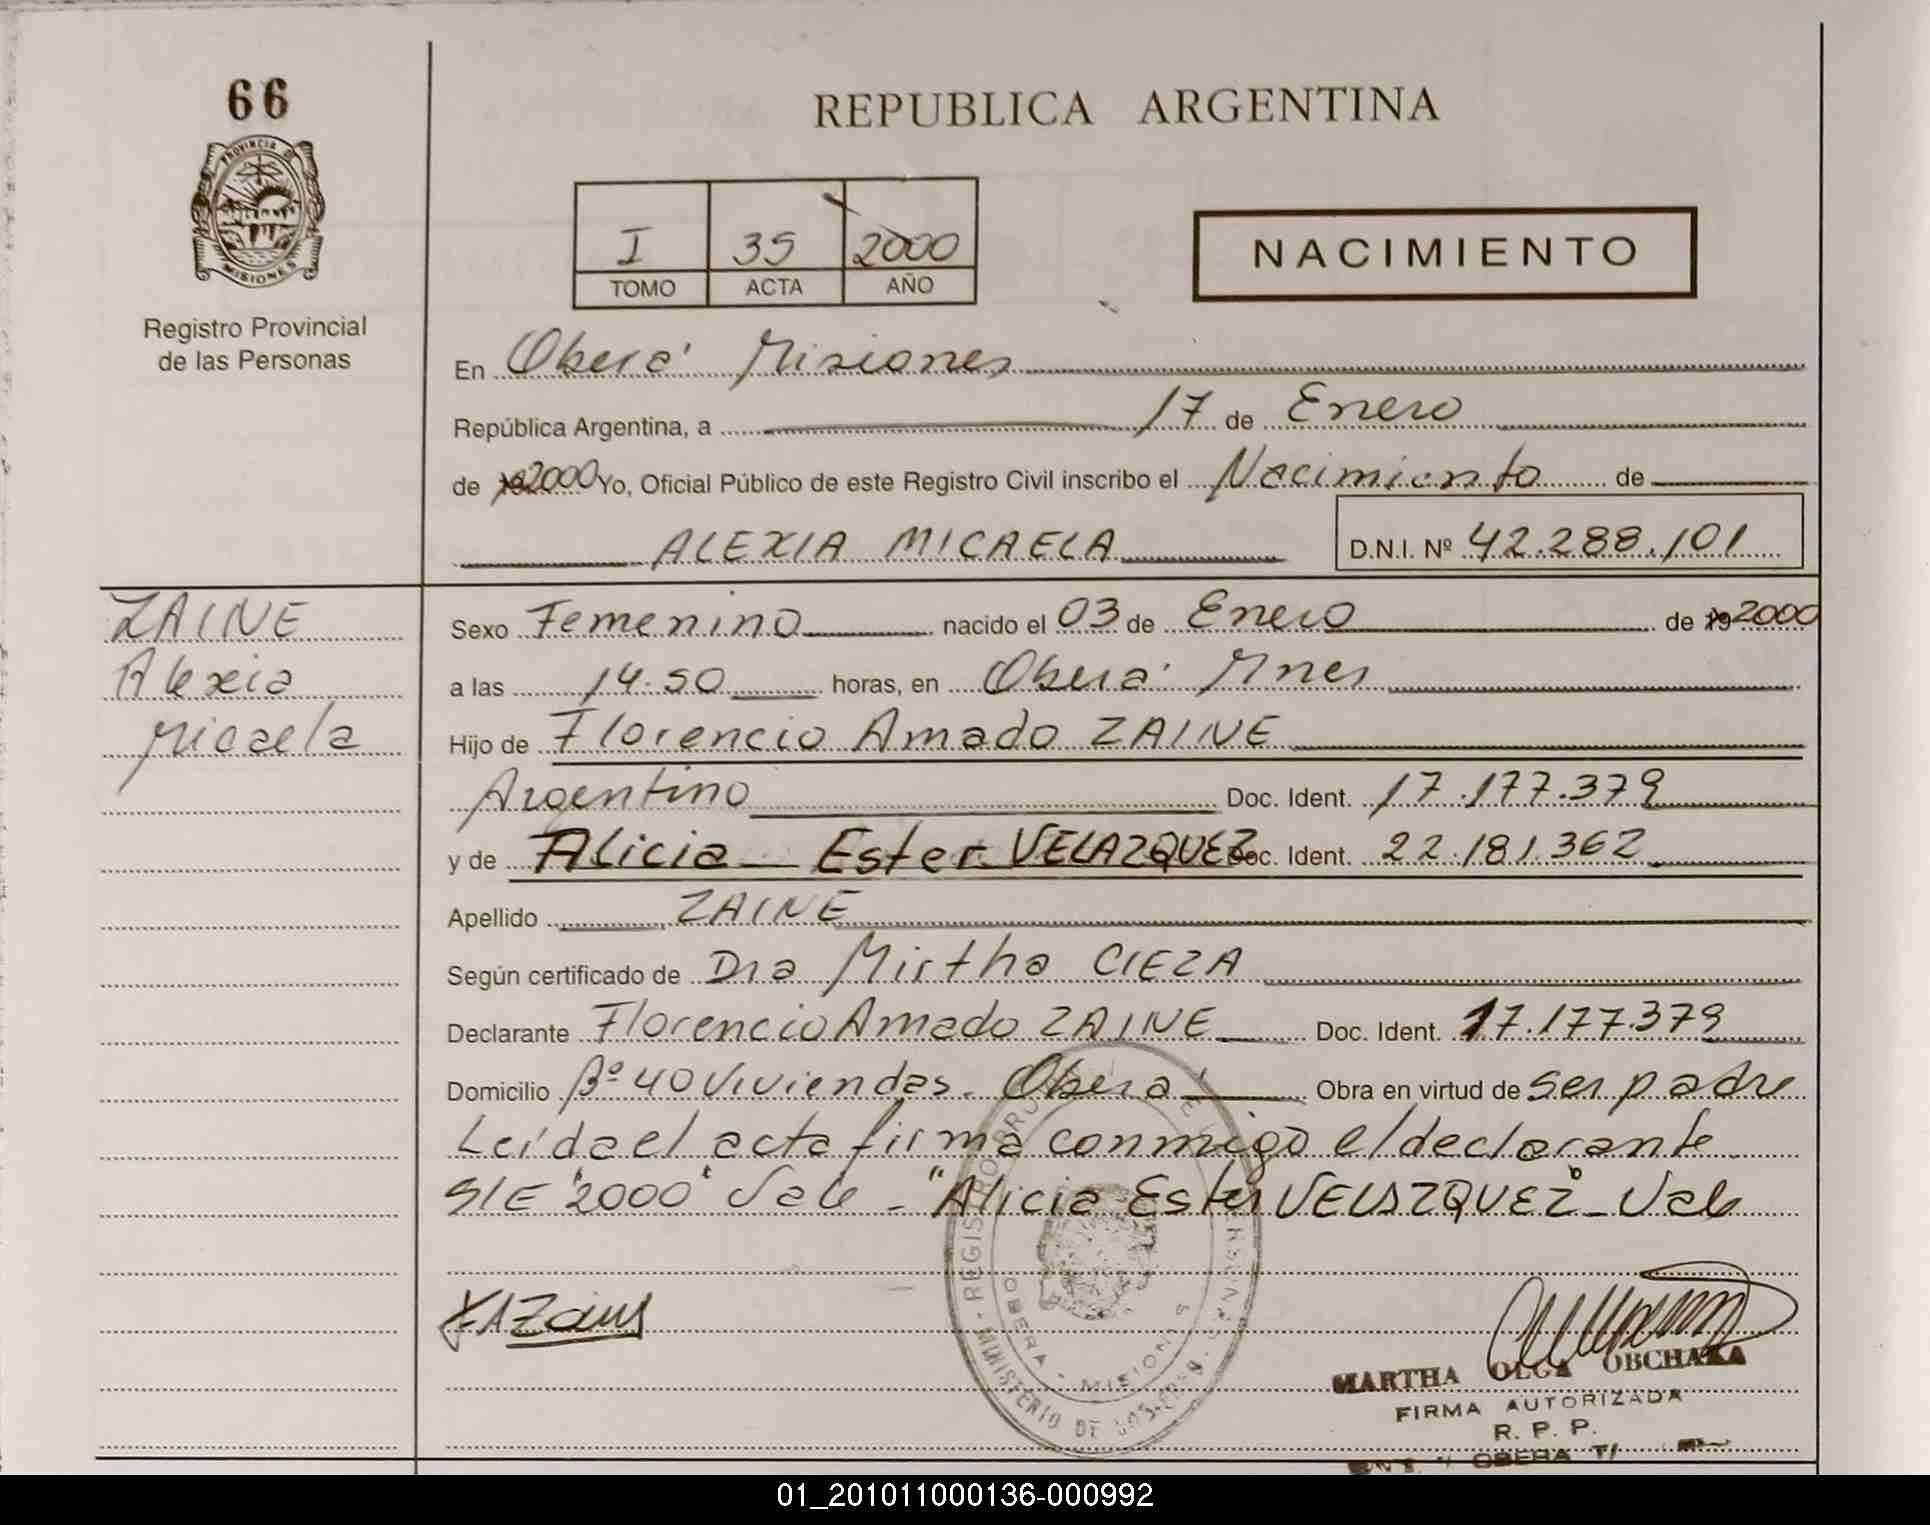 66
PROVINCIA DE
MISIONES
Registro Provincial
de las Personas
REPUBLICA ARGENTINA
I 35 2000
TOMO ACTA AÑO
NACIMIENTO
En Oberá Misiones
República Argentina, a 17 de Enero
de 19 2000 Yo, Oficial Público de este Registro Civil inscribo el Nacimiento de
ALEXIA MICAELA D.N.I. Nº 42.288.101
ZAINE
Alexia
Micaela
Sexo Femenino nacido el 03 de Enero de 19 2000
a las 14.50 horas, en Oberá Mnes
Hijo de Florencio Amado ZAINE
Argentino Doc. Ident. 17.177.379
y de Alicia Ester VELAZQUEZ Doc. Ident. 22.181.362
Apellido ZAINE
Según certificado de Dra Mirtha CIEZA
Declarante Florencio Amado ZAINE Doc. Ident. 17.177.379
Domicilio Bº 40 Viviendas. Oberá Obra en virtud de ser padre
Leída el acta firma conmigo el declarante
S/E "2000" Vale - "Alicia Ester VELAZQUEZ" - Vale
REGISTRO
OBERA - MISIONES
MINISTERIO DE
MARTHA OLGA OBCHAKA
FIRMA AUTORIZADA
R. P. P.
OBERA
01_201011000136-000992